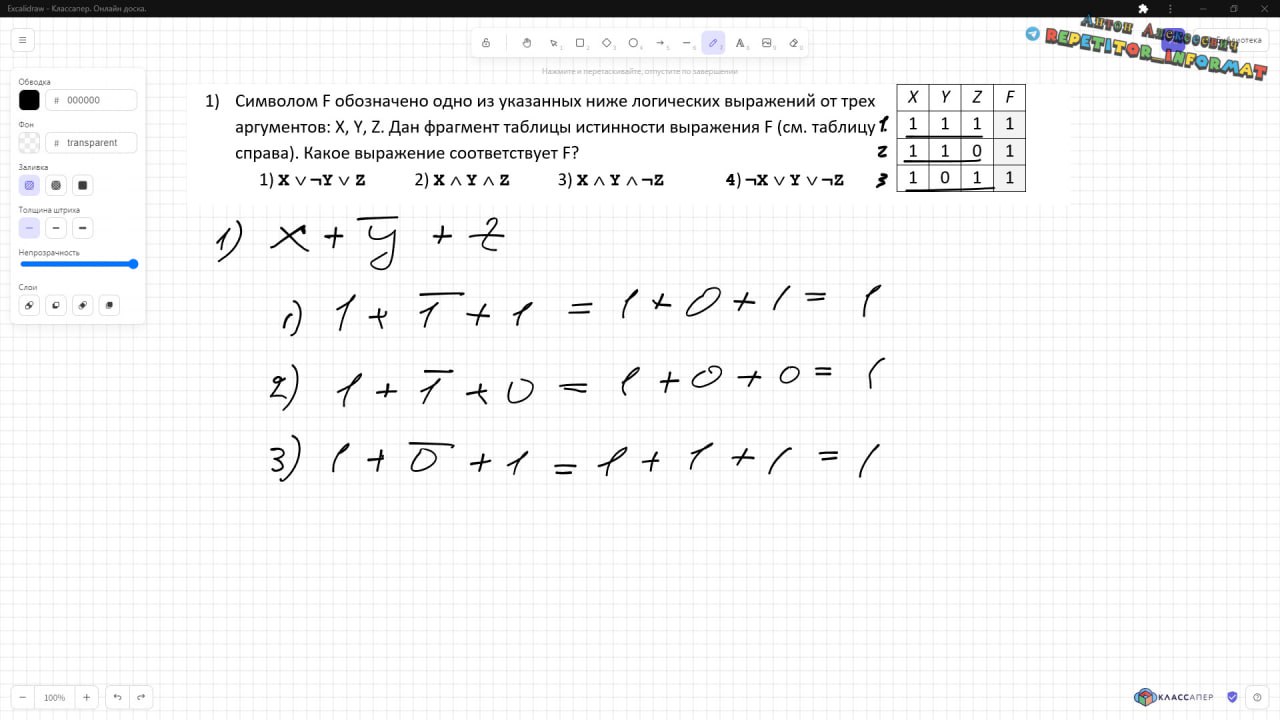 Excalidraw - Классапер. Онлайн доска.
Антон Алексеевич
REPETITOR_INFORMAT
Библиотека
Нажмите и перетаскивайте, отпустите по завершении
Обводка
# 000000
Фон
# transparent
Заливка
Толщина штриха
Непрозрачность
Слои
1) Символом F обозначено одно из указанных ниже логических выражений от трех
аргументов: X, Y, Z. Дан фрагмент таблицы истинности выражения F (см. таблицу
справа). Какое выражение соответствует F?
1) X ∨ ¬Y ∨ Z 2) X ∧ Y ∧ Z 3) X ∧ Y ∧ ¬Z 4) ¬X ∨ Y ∨ ¬Z
X Y Z F
1. 1 1 1 1
2 1 1 0 1
3 1 0 1 1
1) x + y̅ + z
1) 1 + 1̅ + 1 = 1 + 0 + 1 = 1
2) 1 + 1̅ + 0 = 1 + 0 + 0 = 1
3) 1 + 0̅ + 1 = 1 + 1 + 1 = 1
100%
КЛАССАПЕР